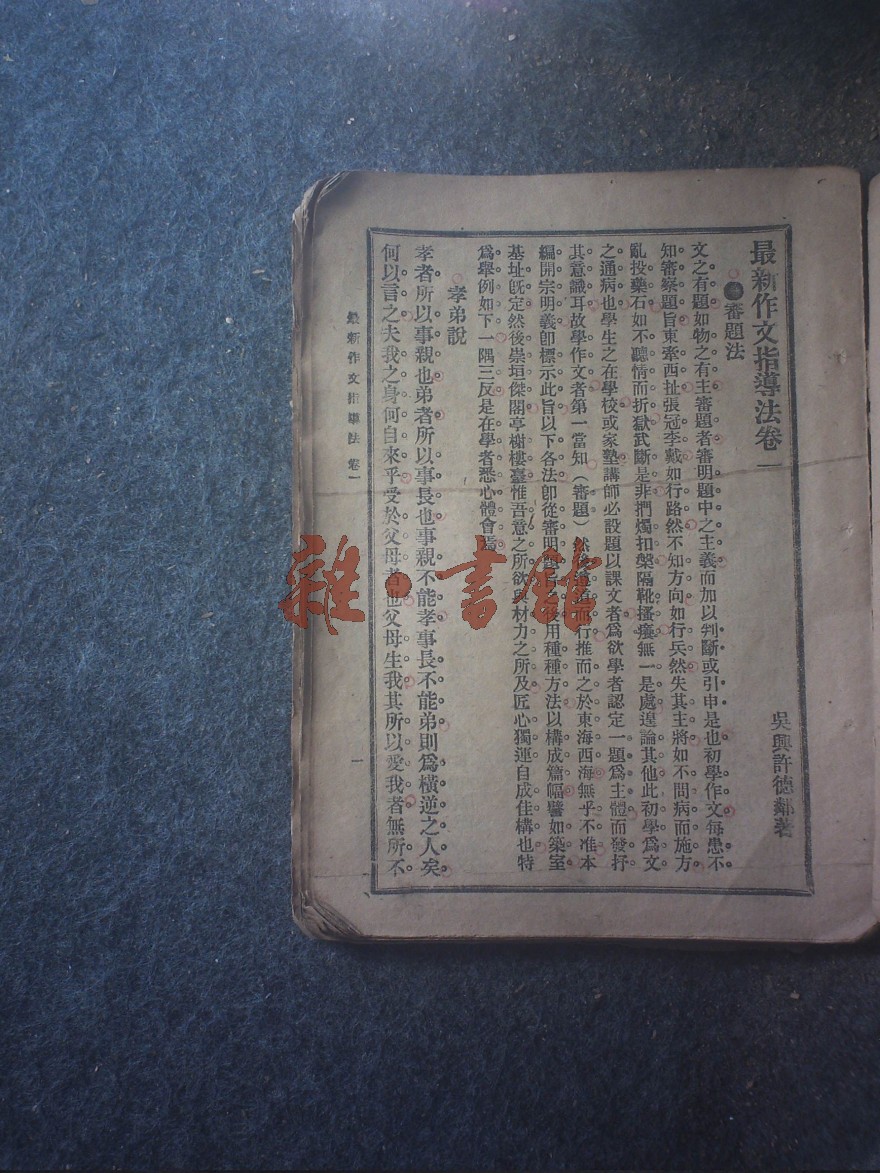 最新作文指導法卷一
吳興許德鄰著
審題法
文之有題如物之有主審題者審明題中之主義而加以判斷或引申是也初學作文每患不
知審察題旨東牽西扯張冠李戴如行路然不知方向如行兵然失其主將如不問病而施方
亂投藥石如不聽情而折獄武斷是非捫燭扣槃隔靴搔癢無一是處遑論其他此初學爲文
之通病也學生之在學校或家塾講師必設題以課文者爲欲學者認定一題爲主體而發抒
其意識耳故學作文者第一當知（審題）然後遵道而行推而之於東海西海無乎不准本
編開宗明義卽標示此旨以下各法卽從審明題旨之後用種種方法以構成篇幅譬如築室
基址旣定然後崇垣傑閣亭榭樓臺惟吾意之所欲與材力之所及匠心獨運自成佳構也特
爲舉例如下一隅三反是在學者悉心體會焉
孝弟說
孝者所以事親也弟者所以事長也事親不能孝事長不能弟則爲橫逆之人矣
何以言之夫我之身何自來乎受於父母者也父母生我其所以愛我者無所不
最新作文指導法 卷一
一
雜·書館